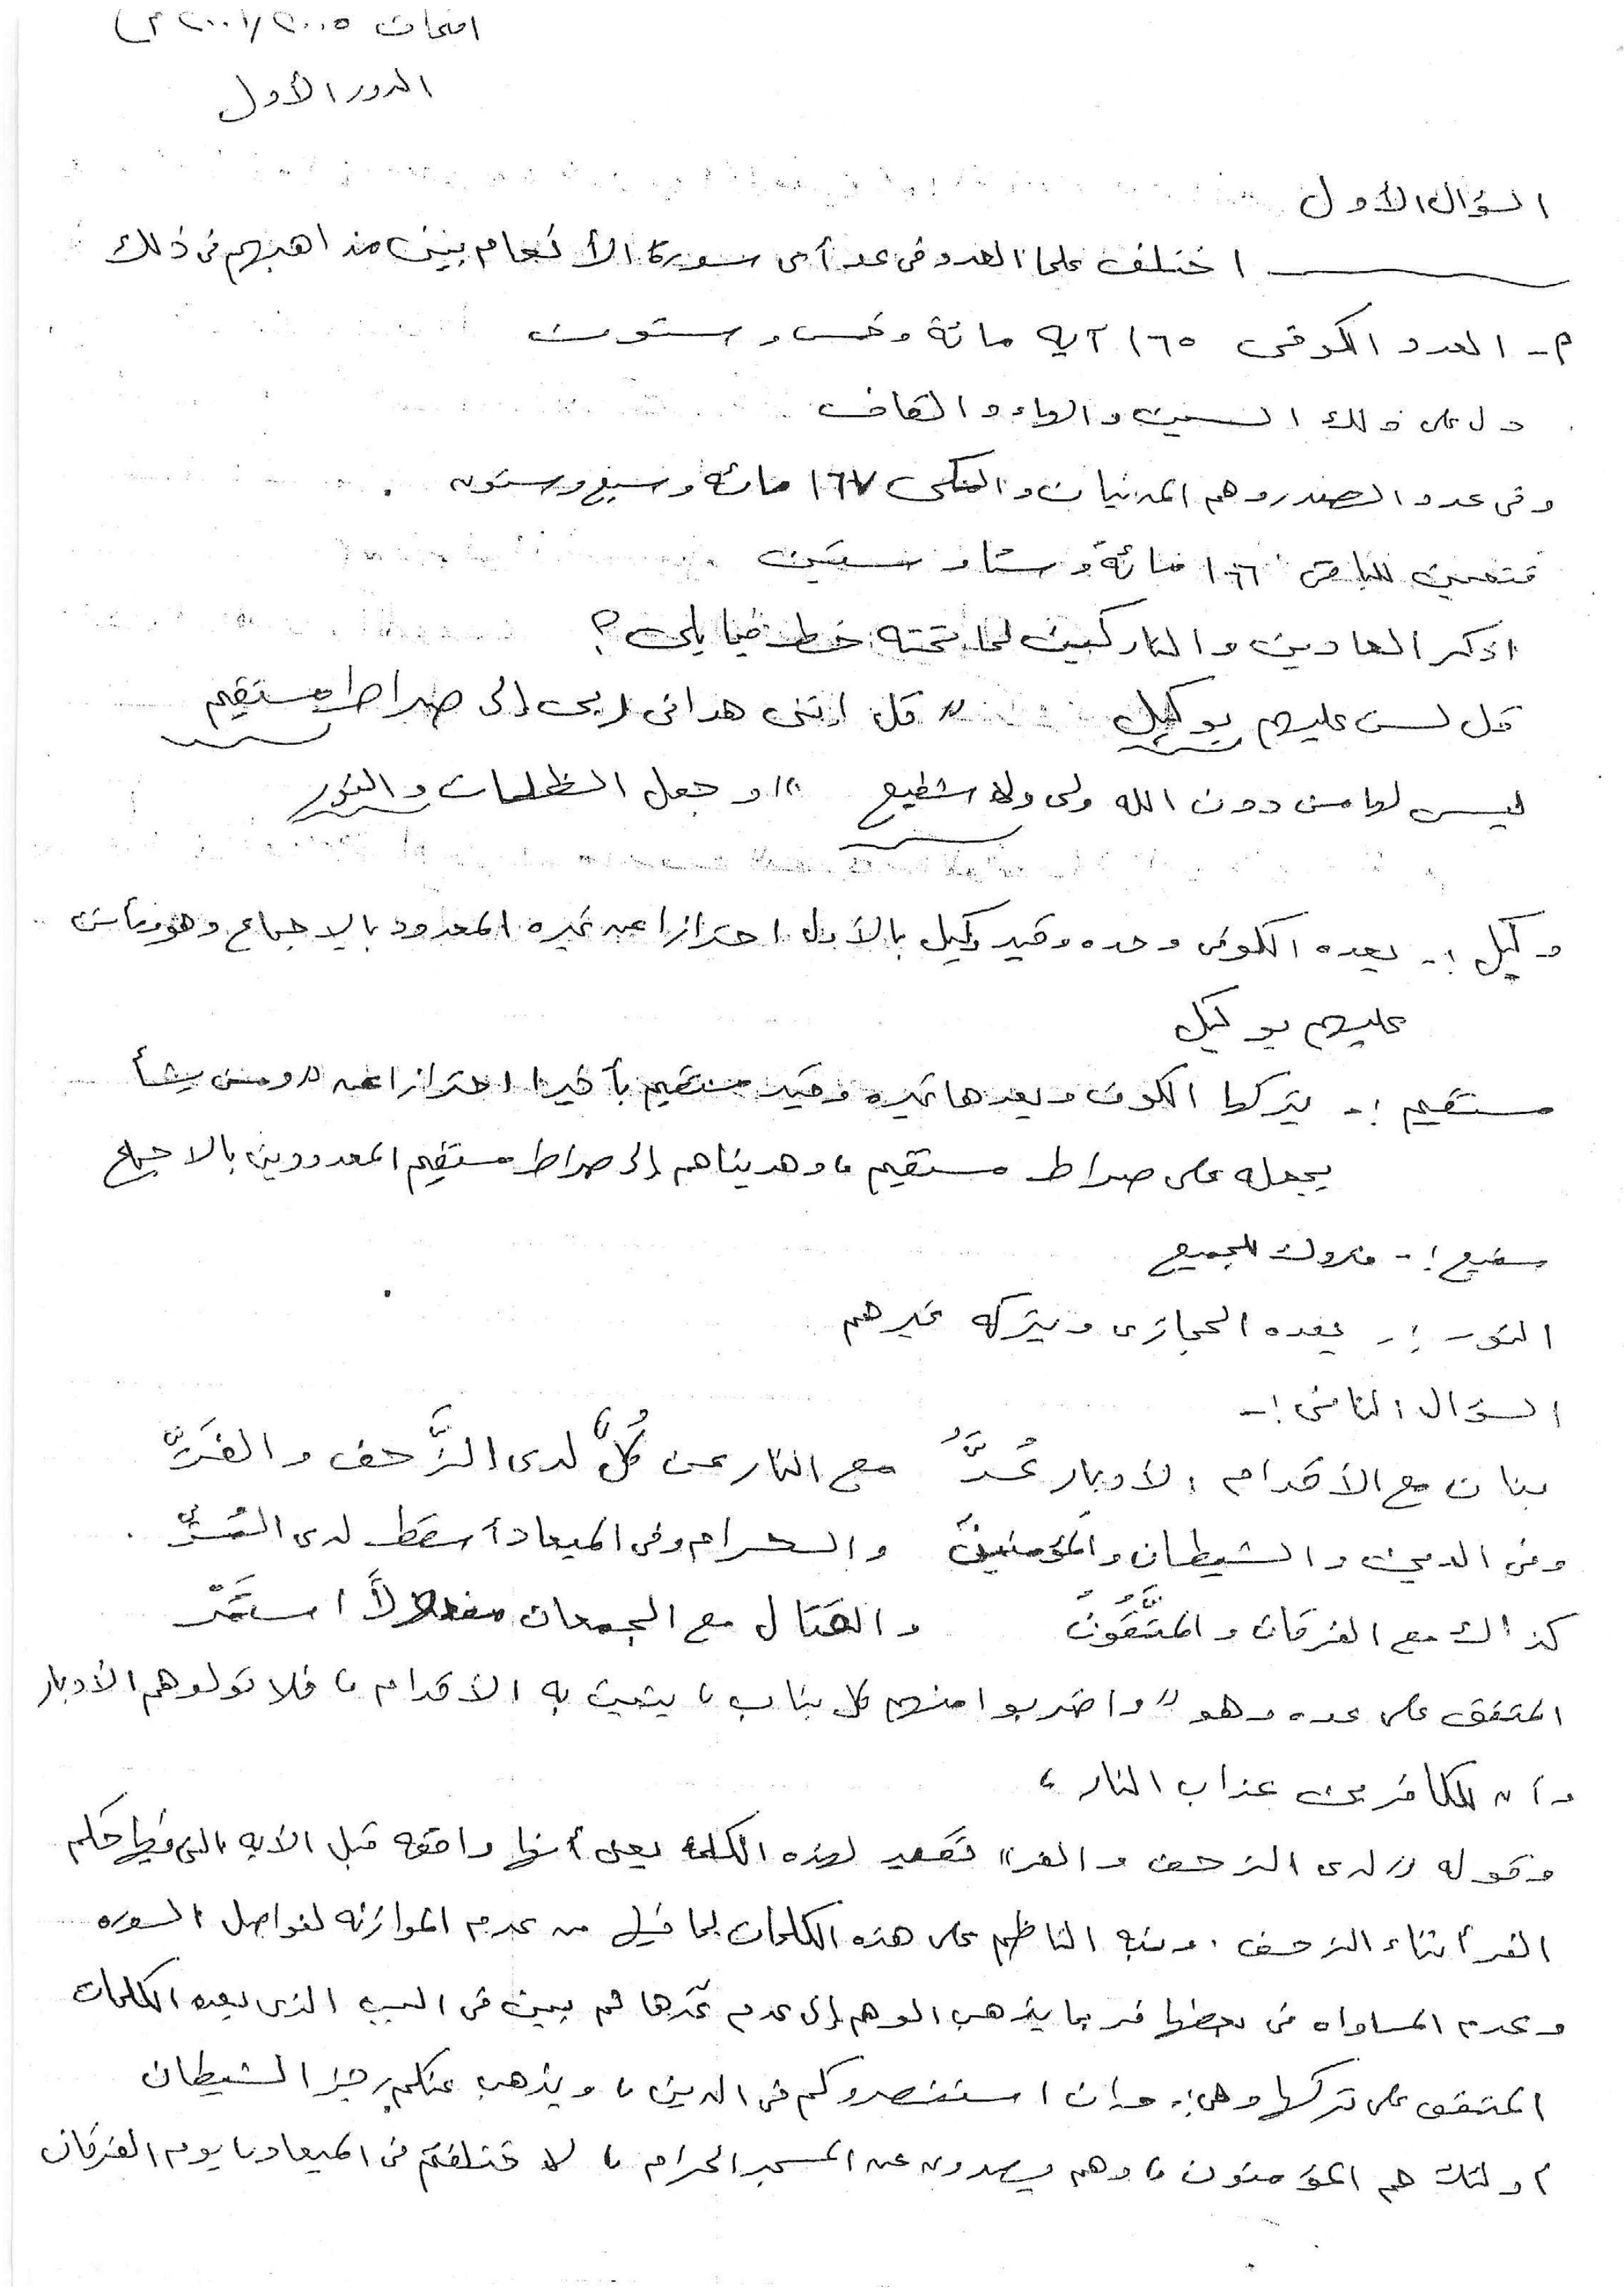 امتحان ٢٠٠٥/٢٠٠٦ م
الدور الأول
السؤال الأول
اختلف علماء العدد فى عد آى سورة الأنعام بين مذاهبهم فى ذلك
م - العدد الكوفى ١٦٥ آيه مائة وخمس وستون
دل على ذلك السين والهاء والقاف
وفى عدد الصدر وهم المدنيان والمكى ١٦٧ مائه وسبع وستون .
فتعين للباقى ١٦٦ مائة وستا وستين
اذكر العادين والتاركين لما تحته خط فيما يلى ؟
قل لست عليكم بوكيل " قل اننى هدانى ربى إلى صراط مستقيم
ليس لها من دون الله ولى ولا شفيع " وجعل الظلمات والنور
وكيل :- يعده الكوفى وحده وقيد وكيل بالأول احترازا عن غيره المعدود بالإجماع وهو وما أنت
عليهم بوكيل
مستقيم :- يتركها الكوفى ويعدها غيره وقيد مستقيم بأخيرا احترازا عن " ومن يشأ
يجعله على صراط مستقيم ، وهديناهم إلى صراط مستقيم المعدودين بالاجماع
شفيع :- متروك للجميع
النور :- يعده الحجازى ويتركه غيرهم
السؤال الثانى :-
بنان مع الأقدام الأدبار عُدَّ مع النار عن كُلٍّ لدى الزَّحف والفَرِّ
وفى الدين والشيطان والمؤمنون والحرام وفى الميعاد أسقط لدى
كذاك مع الفرقان والمتَّقُونُ والقتال مع الجمعان مفعولاً استقر
المتفق على عده وهو " واضربوا منهم كل بنان ، يثبت به الأقدام ، فلا تولوهم الأدبار
وأن للكافرين عذاب النار ،
وقوله " لدى الزحف والفر " تقييد لهذه الكلمة يعنى أنها واقعه قبل الآيه التى فيها حكم
الفر أثناء الزحف . ونبه الناظم على هذه الكلمات لما فيها من عدم الموازنه لفواصل السوره
وعدم المساواه فى بعضها فربما يذهب الوهم إلى عدم عدها ثم بين فى البيت الذى بعده الكلمات
المتفق على تركها وهى :- وإن استنصروكم فى الدين ، ويذهب عنكم رجز الشيطان
أولئك هم المؤمنون ، وهم يصدون عن المسجد الحرام ، لاختلفتم فى الميعاد ، يوم الفرقان